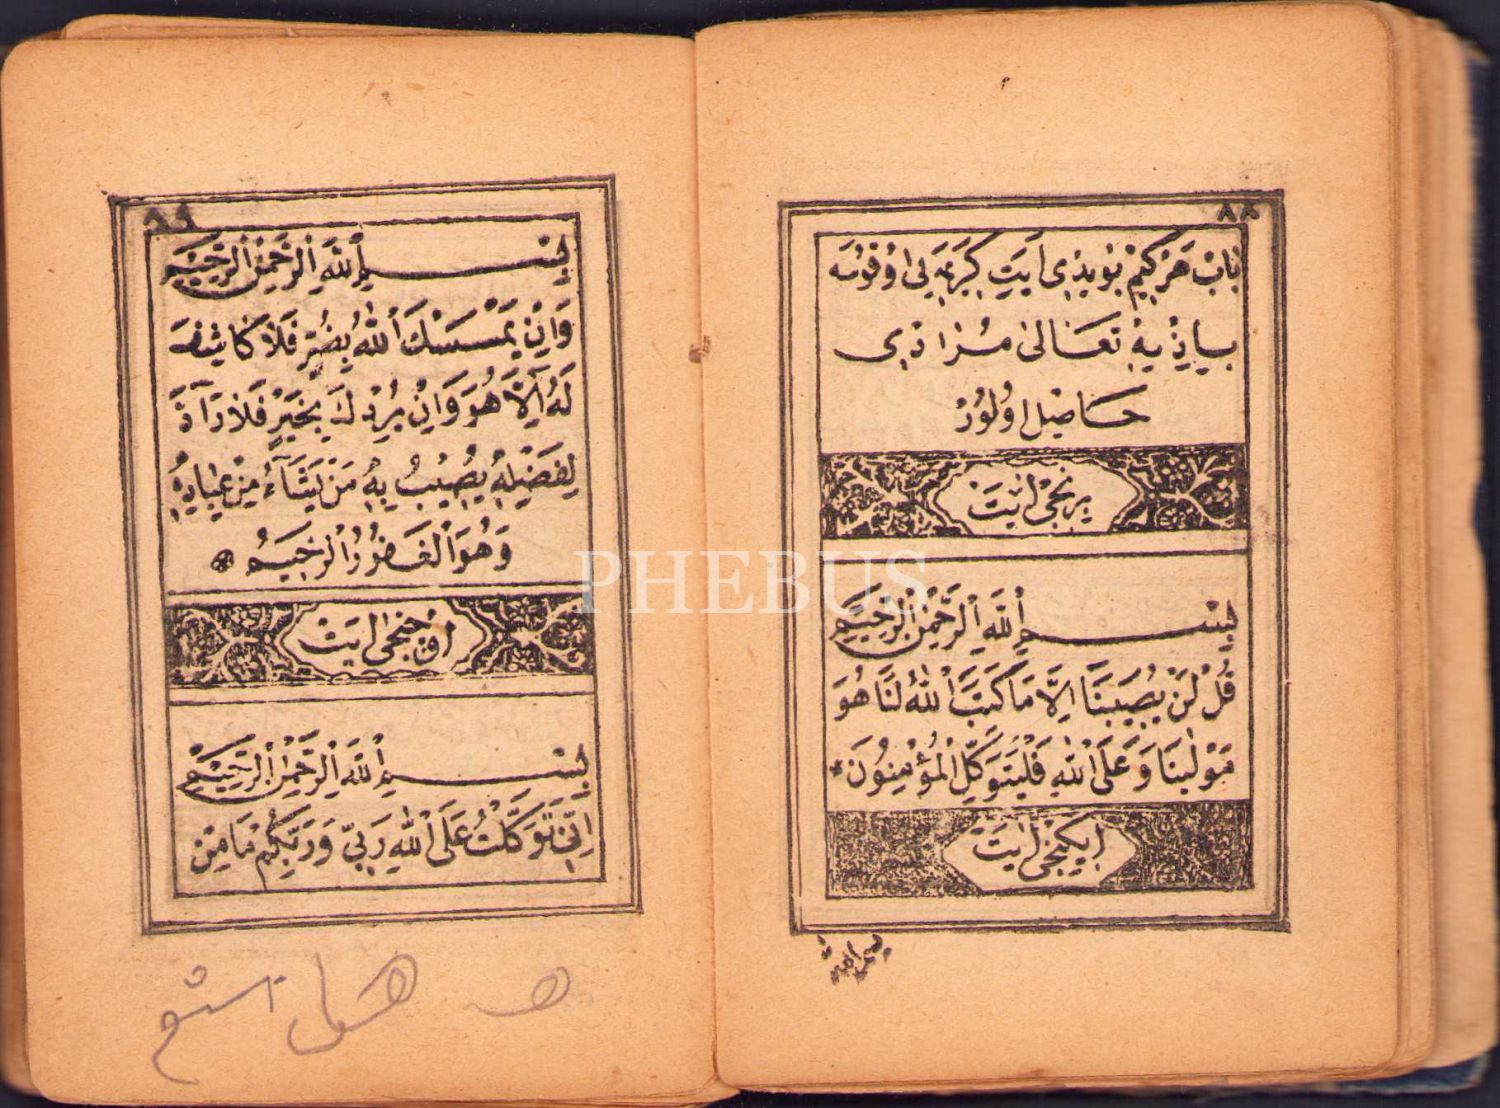 ٨٨
باب هَرْ كِيمْ بُو يِدِى اٰيَتِ كَرِيمَه يِى اوُقُوسَه
يَازِيهْ تَعَالٰى مُرَادِى
حَاصِلْ اوُلُورْ
بِرِنْجِى اٰيَتْ
بِسْمِ اللهِ الرَّحْمٰنِ الرَّحِيمِ
قُلْ لَنْ يُصِيبَنَا اِلَّا مَا كَتَبَ اللهُ لَنَا هُوَ
مَوْلٰينَا وَعَلَى اللهِ فَلْيَتَوَكَّلِ الْمُؤْمِنُونَ *
اِيكِنْجِى اٰيَتْ
بسم الله
٨٩
بِسْمِ اللهِ الرَّحْمٰنِ الرَّحِيمِ
وَاِنْ يَمْسَسْكَ اللهُ بِضُرٍّ فَلَا كَاشِفَ
لَهُ اِلَّا هُوَ وَاِنْ يُرِدْكَ بِخَيْرٍ فَلَا رَآدَّ
لِفَضْلِهِ يُصِيبُ بِهِ مَنْ يَشَآءُ مِنْ عِبَادِهِ
وَهُوَ الْغَفُورُ الرَّحِيمُ *
اوُچُنْجِى اٰيَتْ
بِسْمِ اللهِ الرَّحْمٰنِ الرَّحِيمِ
اِنِّى تَوَكَّلْتُ عَلَى اللهِ رَبِّى وَرَبِّكُمْ مَا مِنْ
PHEBUS